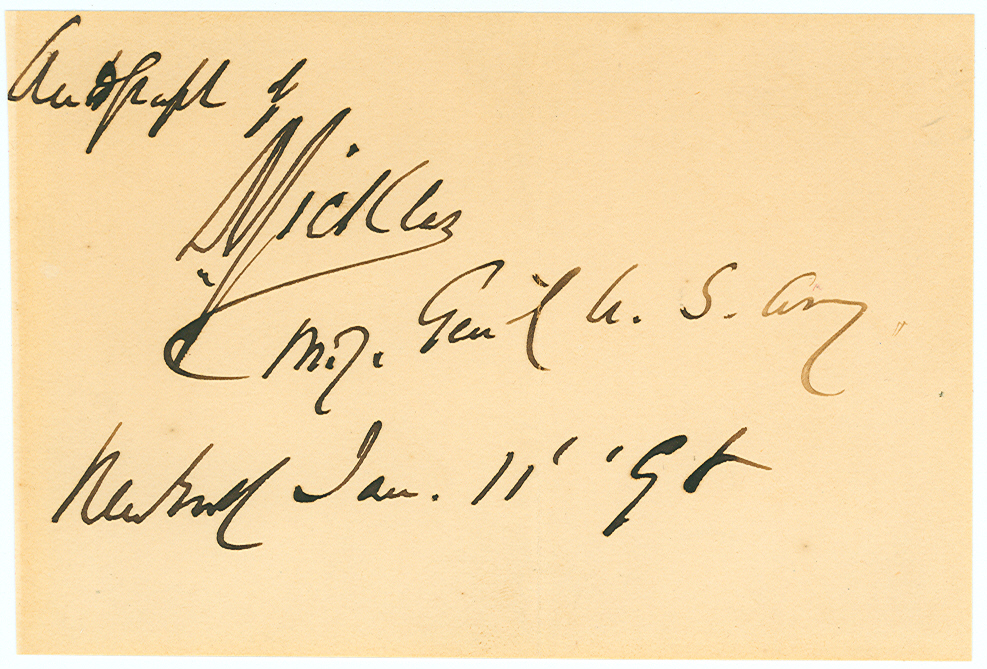 Autograph of
D Sickles
Maj. Gen'l U. S. Army
New York Jan. 11'